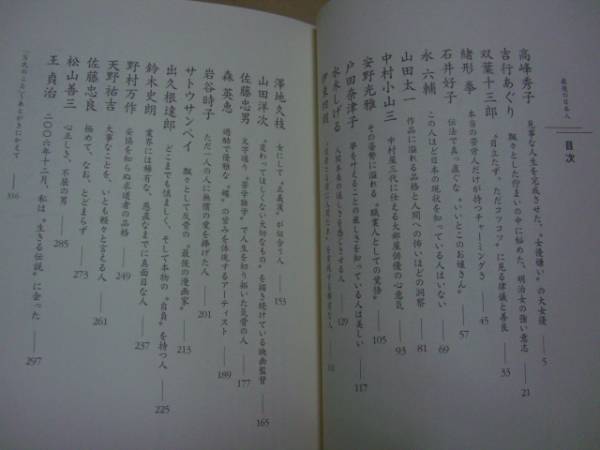 最後の日本人
目次
高峰秀子 見事な人生を完成させた、"女優嫌い"の大女優 —— 5
吉行あぐり 飄々とした佇まいの中に秘めた、明治女の強い意志 —— 21
双葉十三郎 "目立たず、ただコツコツ"に見る律儀と善良 —— 33
緒形 拳 本当の苦労人だけが持つチャーミングさ —— 45
石井好子 伝法で真っ直ぐな"いいとこのお嬢さん" —— 57
永 六輔 この人ほど日本の現状を知っている人はいない —— 69
山田太一 作品に溢れる品格と人間への怖いほどの洞察 —— 81
中村小山三 中村屋三代に仕える大部屋俳優の心意気 —— 93
安野光雅 その姿勢に溢れる"職業人としての覚悟" —— 105
戸田奈津子 夢を叶えることの厳しさを知っている人は美しい —— 117
水木しげる 人間本来の逞しさを感じさせる人 —— 129
伊東四朗
澤地久枝 女にして"正義漢"が似合う人 —— 153
山田洋次 "変わってほしくない大切なもの"を描き続けている映画監督 —— 165
佐藤忠男 文字通り、"苦学独学"で人生を切り拓いた気骨の人 —— 177
森 英恵 過酷で優雅な"蝶"の営みを体現するアーティスト —— 189
岩谷時子 ただ一人の人に無償の愛を捧げた人 —— 201
サトウサンペイ 飄々として反骨の"最後の漫画家" —— 213
出久根達郎 どこまでも慎ましく、そして本物の"自負"を持つ人 —— 225
鈴木史朗 業界には稀有な、愚直なまでに真面目な人 —— 237
野村万作 妥協を知らぬ求道者の品格 —— 249
天野祐吉 大事なことを、いとも軽々と言える人 —— 261
佐藤忠良 極めて、なお、とどまらず —— 273
松山善三 心正しき、不屈の男 —— 285
王 貞治 二〇〇六年十二月、私は"生きる伝説"に会った —— 297
—— 316